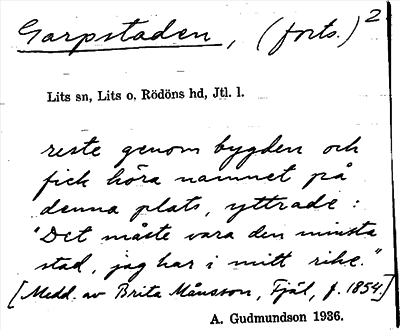 Garpstaden, (forts.) 2
Lits sn, Lits o, Rödöns hd, Jtl. l.
reste genom bygden och
fick höra namnet på
denna plats, yttrade:
"Det måste vara den minsta
stad, jag har i mitt rike."
[Medd. av Brita Månsson, Fjäl, f. 1854.]
A. Gudmundson 1936.